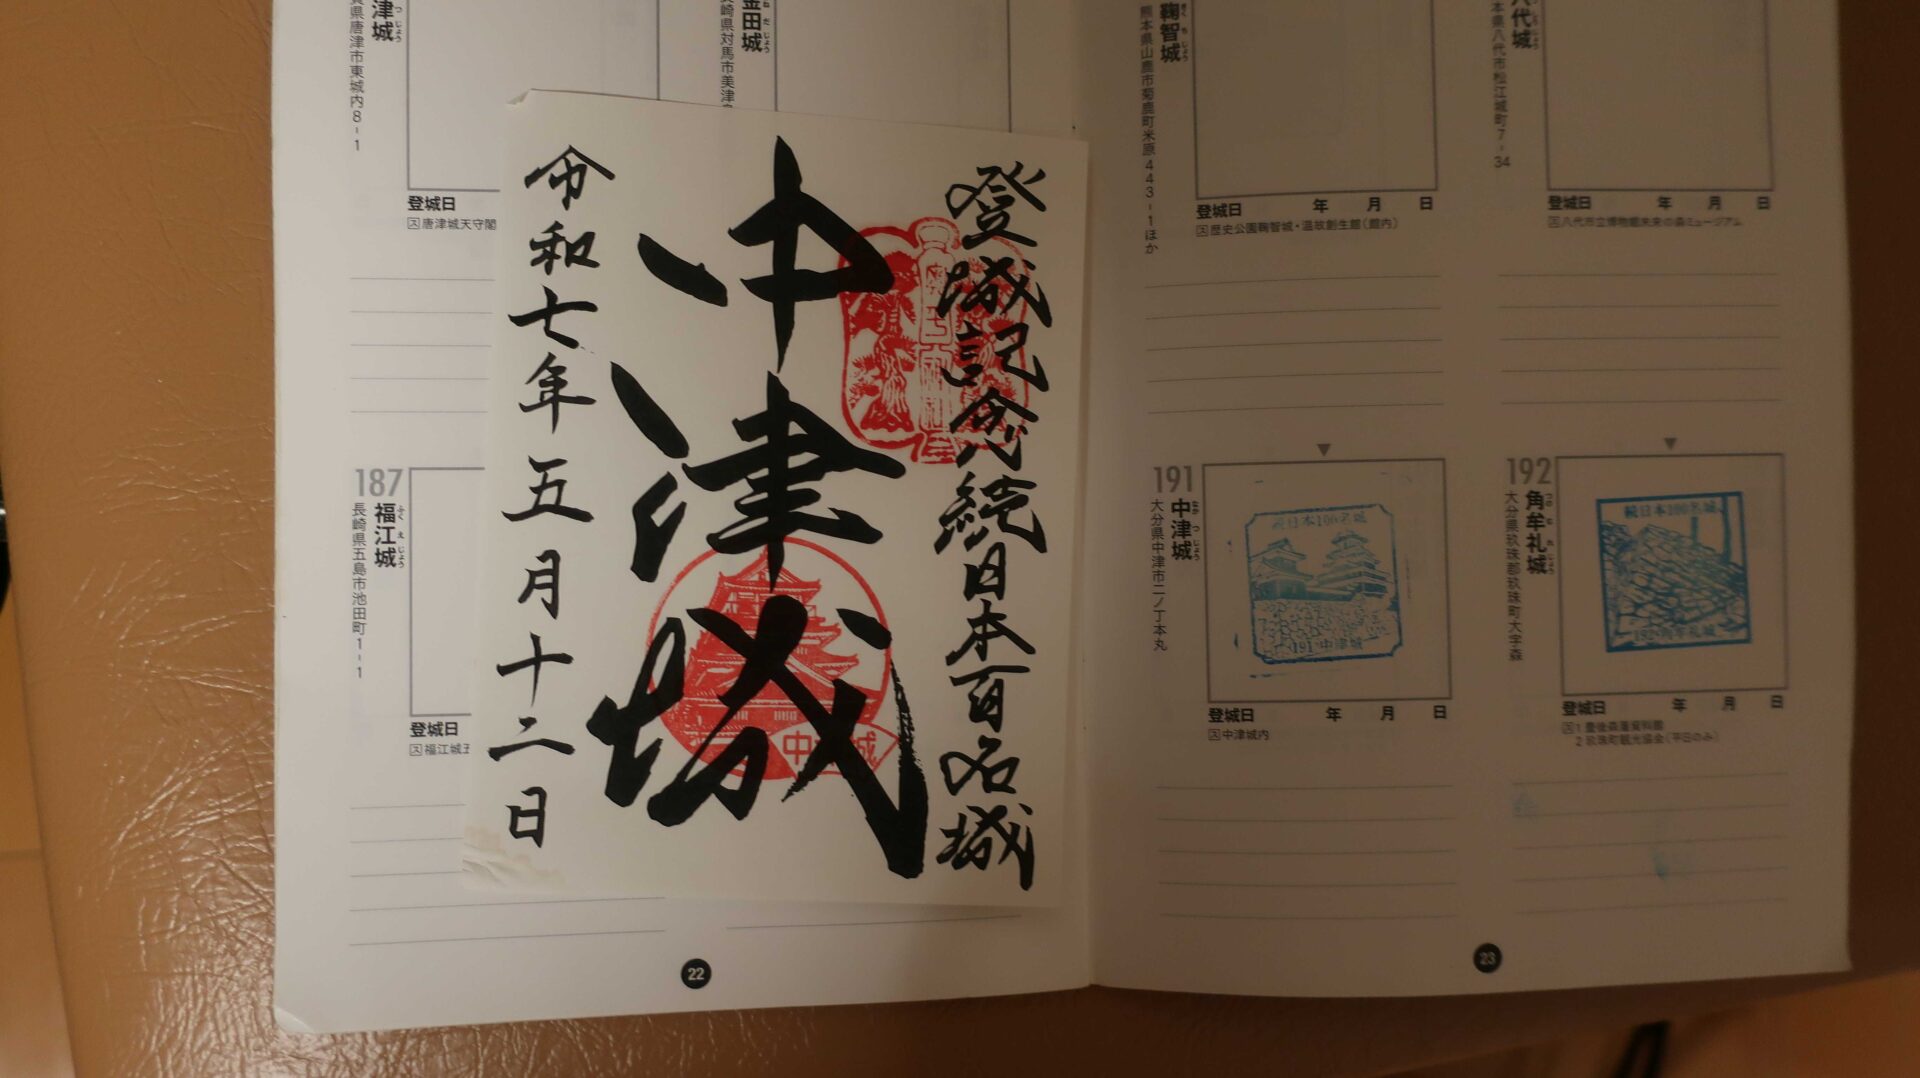 津城
つ じょう
賀県唐津市東城内8-1
登城日
ス唐津城天守閣
金田城
ね だ じょう
長崎県対馬市美津
187
福江城
ふく え じょう
長崎県五島市池田町1-1
登城日
ス福江城
登城記念 続日本百名城
中津城
中 城
令和七年五月十二日
22
鞠智城
きく ち じょう
熊本県山鹿市菊鹿町米原443-1ほか
登城日 年 月 日
ス歴史公園鞠智城・温故創生館(館内)
八代城
じょう
本県八代市松江城町7-34
登城日 年 月 日
ス八代市立博物館未来の森ミュージアム
191
中津城
なか つ じょう
大分県中津市二ノ丁本丸
続日本100名城
191 中津城
登城日 年 月 日
ス中津城内
192
角牟礼城
つの む れ じょう
大分県玖珠郡玖珠町大字森
続日本100名城
192 角牟礼城
登城日 年 月 日
ス1 豊後森藩資料館
2 玖珠町観光協会(平日のみ)
23